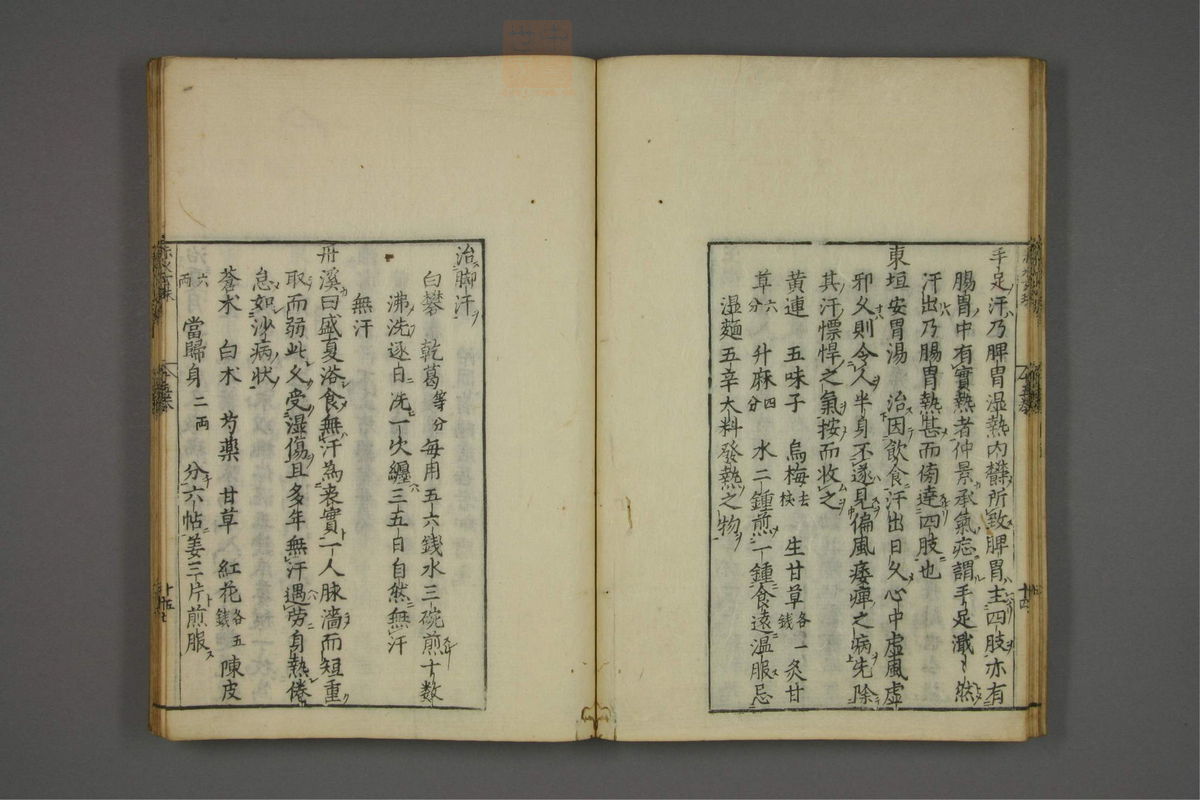 手足汗乃脾胃湿熱内欝所致脾胃主四肢亦有
腸胃中有實熱者仲景承氣症謂手足濈々然
汗出乃腸胃熱甚而傍達四肢也
東垣安胃湯　治因飲食汗出日久心中虚風虚
邪久則令人半身不遂見偏風痿痺之病先除
其汗慓悍之氣按而收之
黄連　五味子　烏梅去核　生甘草各一錢　炙甘
草六分　升麻四分　水二鍾煎一鍾食遠温服忌
湿麵五辛大料發熱之物
治脚汗
白礬　乾葛等分　毎用五六錢水三碗煎十数
沸洗逐日洗一次纏三五日自然無汗
無汗
丹溪曰盛夏浴食無汗為表實一人脉濇而短重
取而弱此久受湿傷且多年無汗遇労身熱倦
怠如沙病状
蒼朮　白朮　芍薬　甘草　紅花各五錢　陳皮
六両　當歸身二両　分六帖姜三片煎服